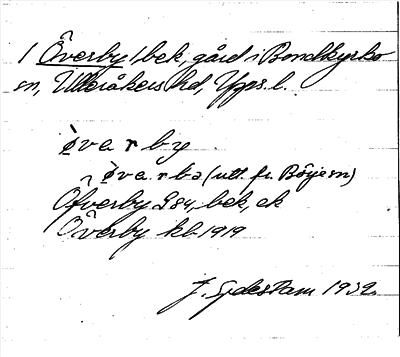 1 Överby, bek, gård i Bondkyrko
sn, Ulleråkers hd, Upps. l.
ö̀varby
~ ö̀varbə (utt. fr. Börje sn)
Öfverby G84, bek, ek
Överby kb 1919
J. Sydestam 1932.